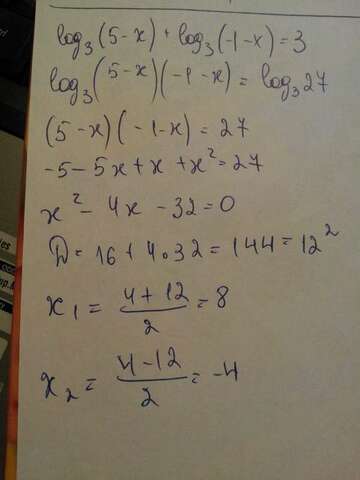 log₃(5-x) + log₃(-1-x) = 3
log₃(5-x)(-1-x) = log₃27
(5-x)(-1-x) = 27
-5-5x+x+x²=27
x²-4x-32=0
D=16+4·32=144=12²
x₁ = (4+12)/2 = 8
x₂ = (4-12)/2 = -4